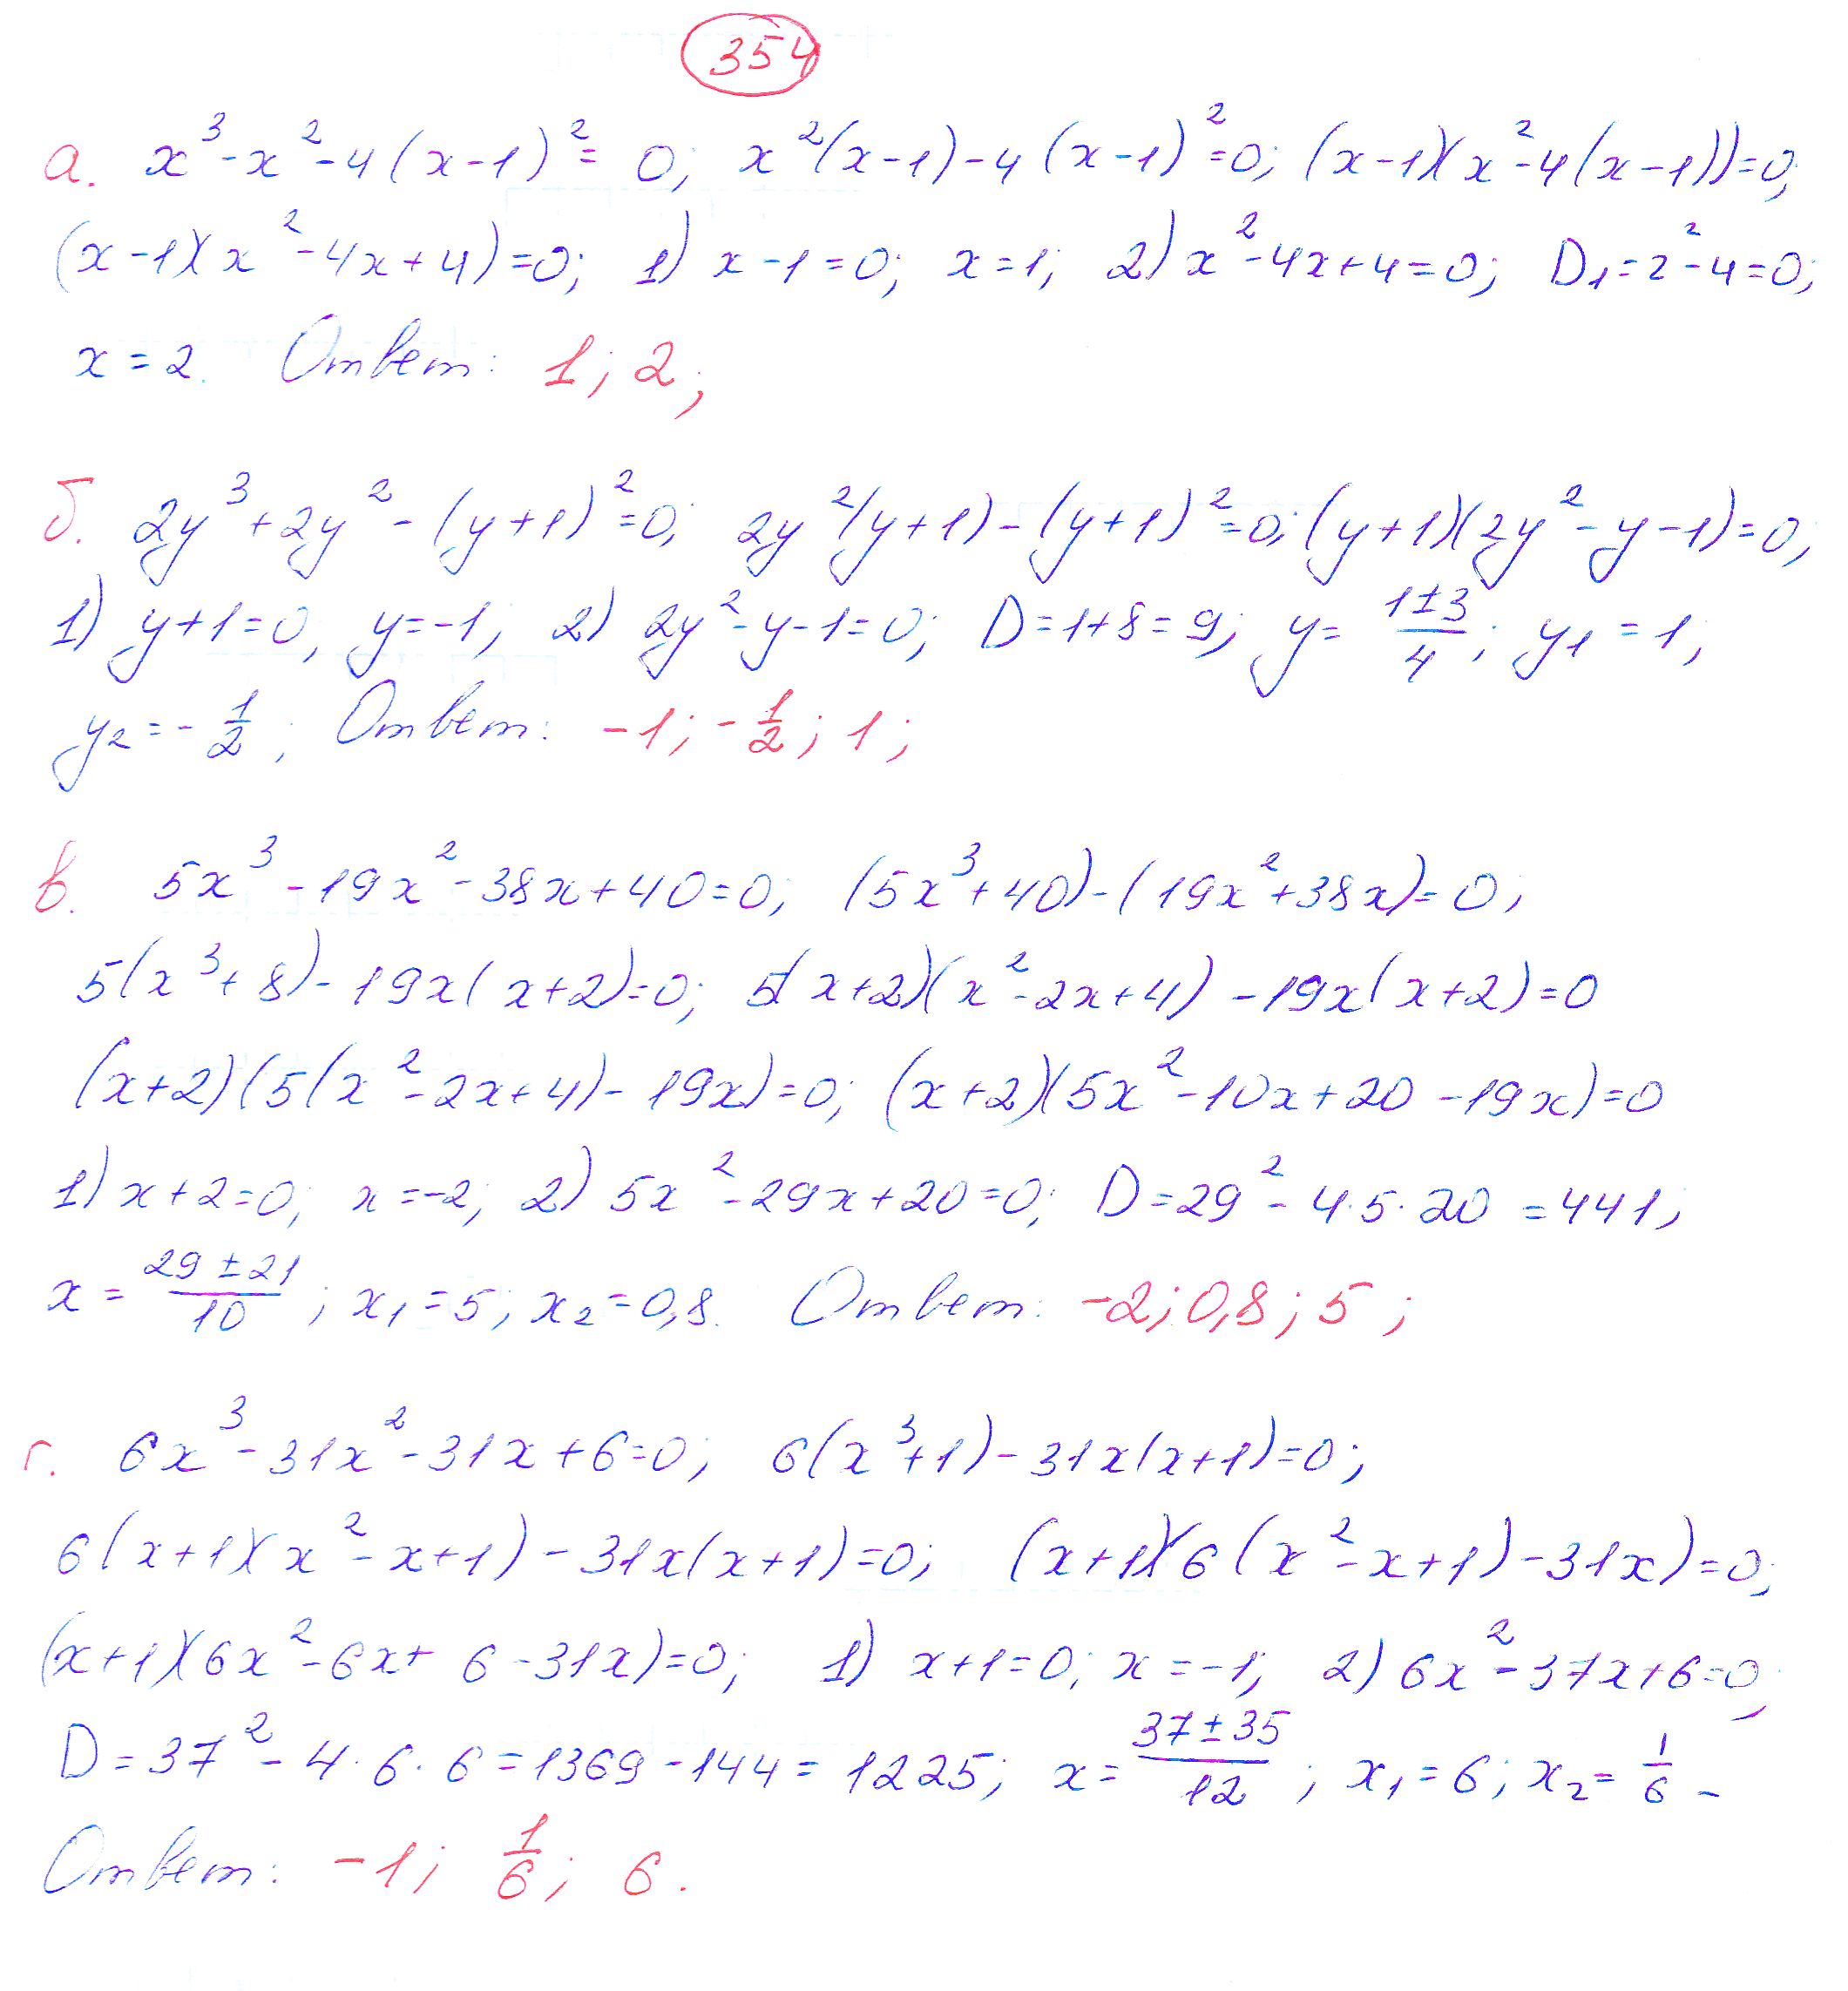 354
а. x³-x²-4(x-1)²=0; x²(x-1)-4(x-1)²=0; (x-1)(x²-4(x-1))=0;
(x-1)(x²-4x+4)=0; 1) x-1=0; x=1; 2) x²-4x+4=0; D₁=2²-4=0;
x=2. Ответ: 1; 2;
б. 2y³+2y²-(y+1)²=0; 2y²(y+1)-(y+1)²=0; (y+1)(2y²-y-1)=0;
1) y+1=0, y=-1; 2) 2y²-y-1=0; D=1+8=9; y=(1±3)/4; y₁=1;
y₂=-1/2; Ответ: -1; -1/2; 1;
в. 5x³-19x²-38x+40=0; (5x³+40)-(19x²+38x)=0;
5(x³+8)-19x(x+2)=0; 5(x+2)(x²-2x+4)-19x(x+2)=0
(x+2)(5(x²-2x+4)-19x)=0; (x+2)(5x²-10x+20-19x)=0
1) x+2=0; x=-2; 2) 5x²-29x+20=0; D=29²-4·5·20=441;
x=(29±21)/10; x₁=5; x₂=0,8. Ответ: -2; 0,8; 5;
г. 6x³-31x²-31x+6=0; 6(x³+1)-31x(x+1)=0;
6(x+1)(x²-x+1)-31x(x+1)=0; (x+1)(6(x²-x+1)-31x)=0;
(x+1)(6x²-6x+6-31x)=0; 1) x+1=0; x=-1; 2) 6x²-37x+6=0;
D=37²-4·6·6=1369-144=1225; x=(37±35)/12; x₁=6; x₂=1/6-
Ответ: -1; 1/6; 6.